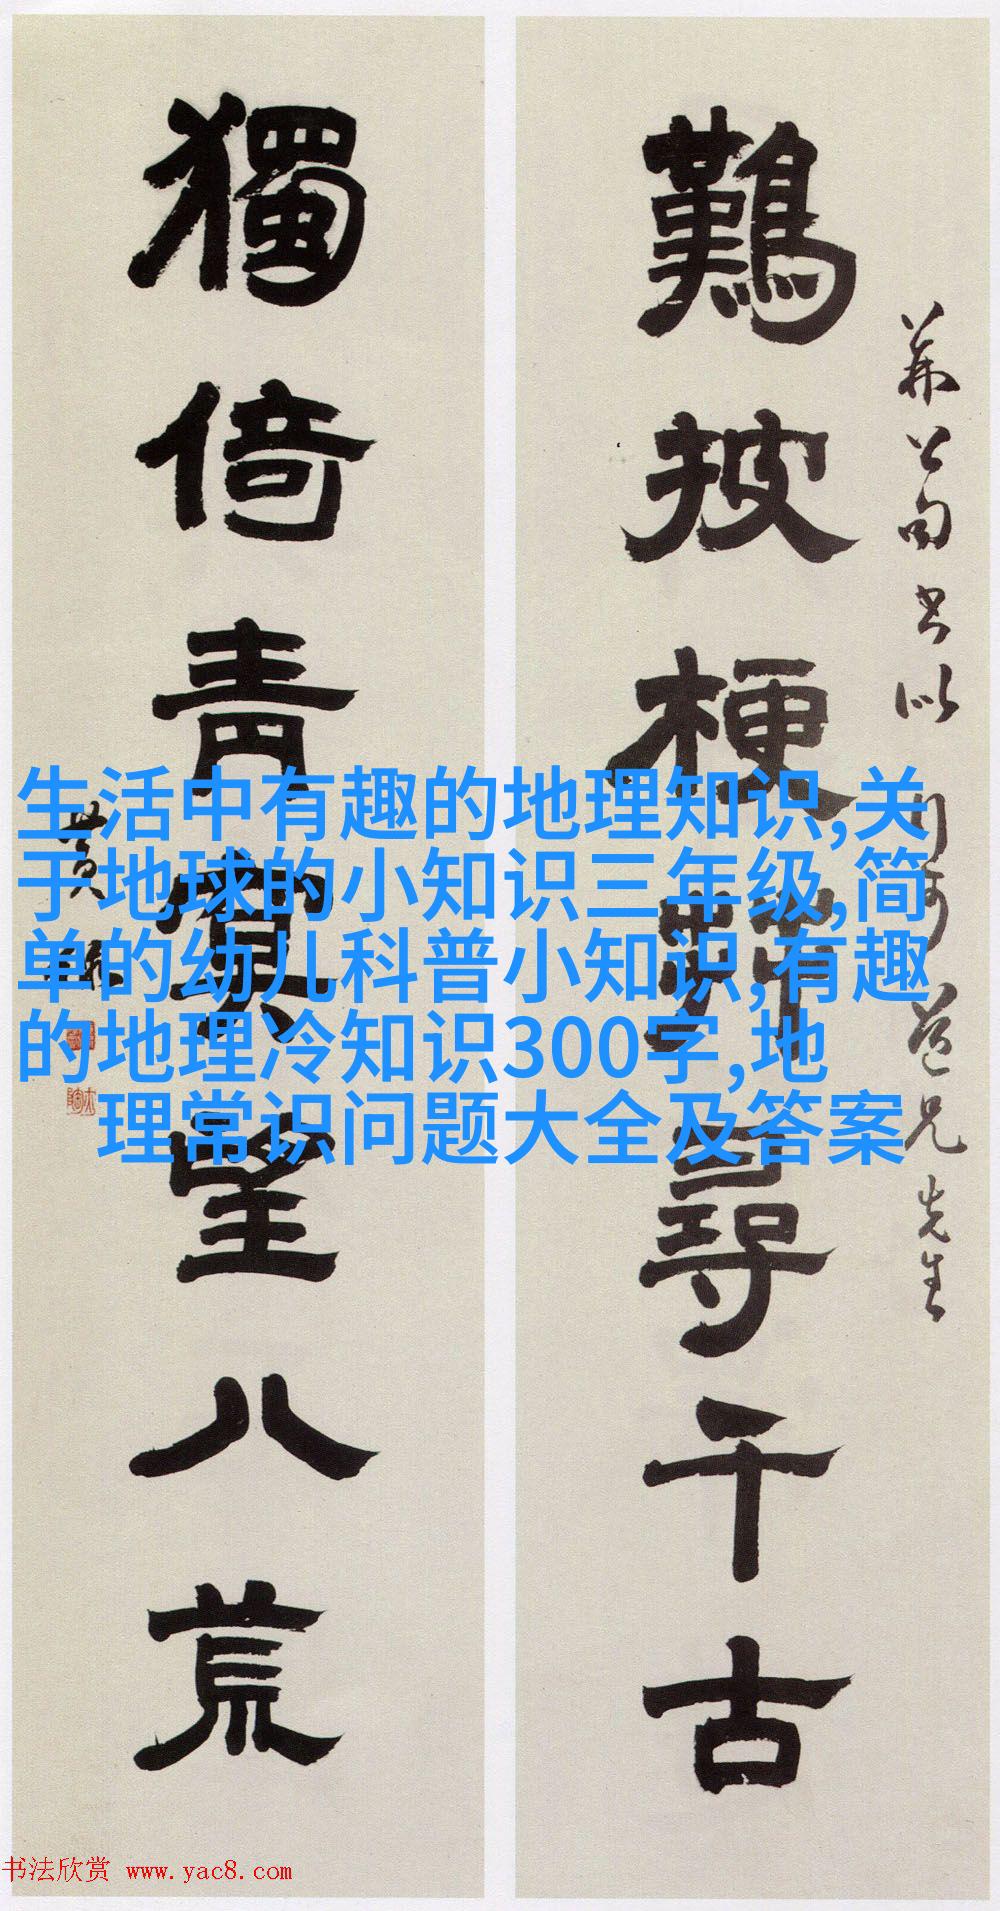 荆公句書以 道兄先生
難披梗 尋千古
獨倚青冥望八荒
黄
生活中有趣的地理知识,关
于地球的小知识三年级,简
单的幼儿科普小知识,有趣
的地理冷知识300字,地
理常识问题大全及答案
书法欣赏 www.yac8.com